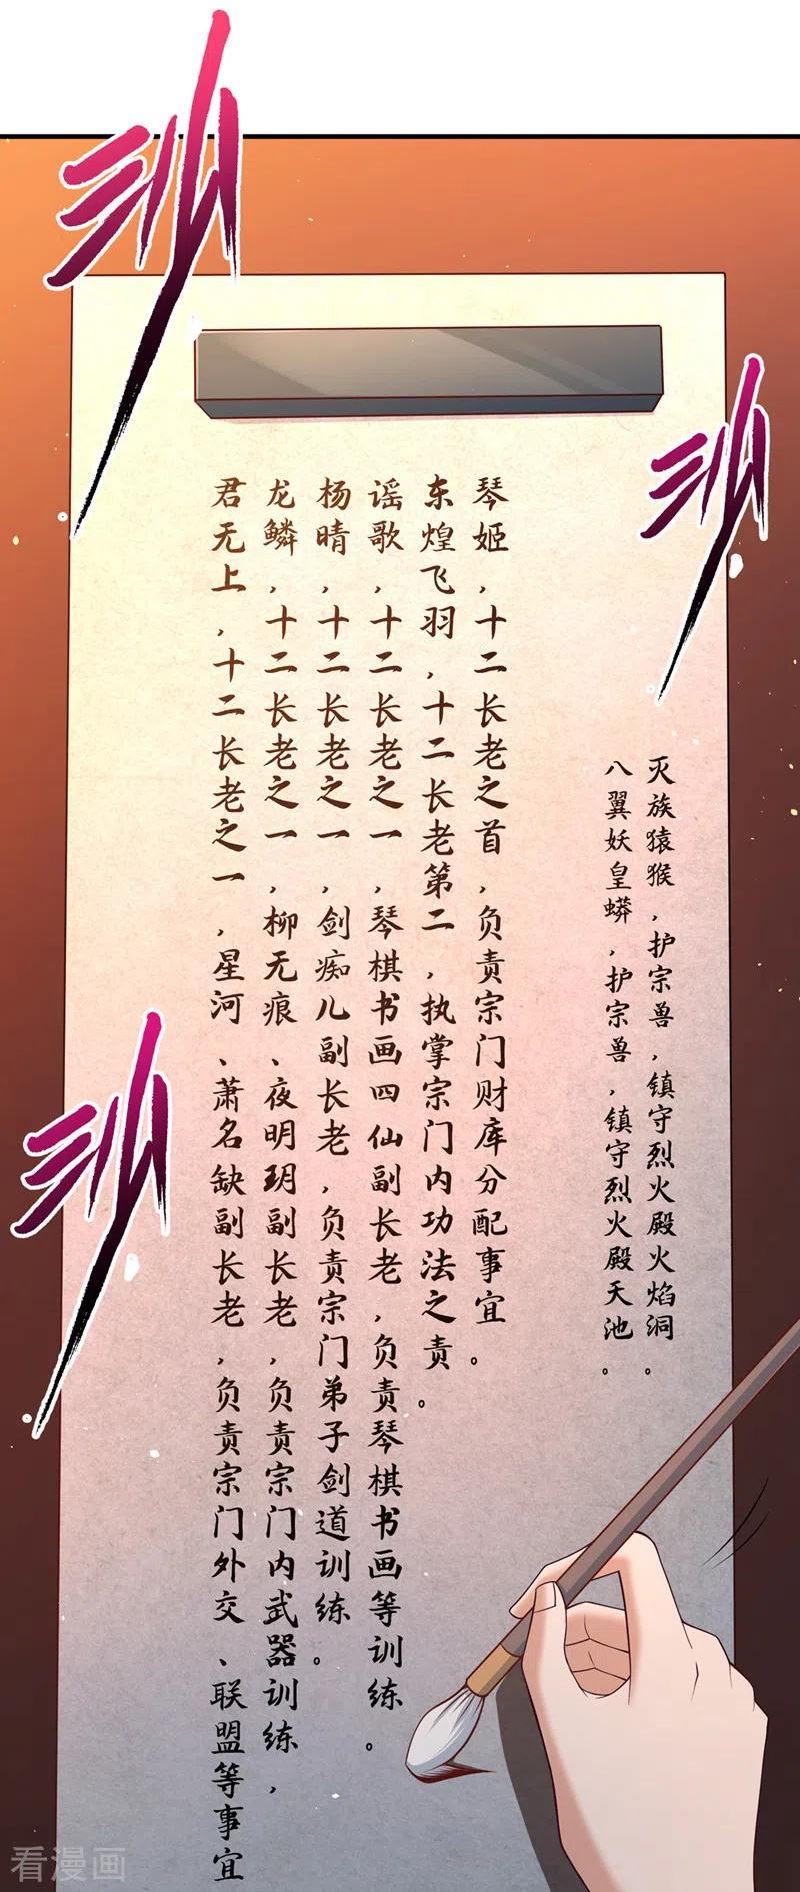 唰
唰
唰
灭族猿猴，护宗兽，镇守烈火殿火焰洞。
八翼妖皇蟒，护宗兽，镇守烈火殿天池。
琴姬，十二长老之首，负责宗门财库分配事宜。
东煌飞羽，十二长老第二，执掌宗门内功法之责。
谣歌，十二长老之一，琴棋书画四仙副长老，负责琴棋书画等训练。
杨晴，十二长老之一，剑痴儿副长老，负责宗门弟子剑道训练。
龙鳞，十二长老之一，柳无痕、夜明玥副长老，负责宗门内武器训练，
君无上，十二长老之一，星河、萧名缺副长老，负责宗门外交、联盟等事宜
看漫画